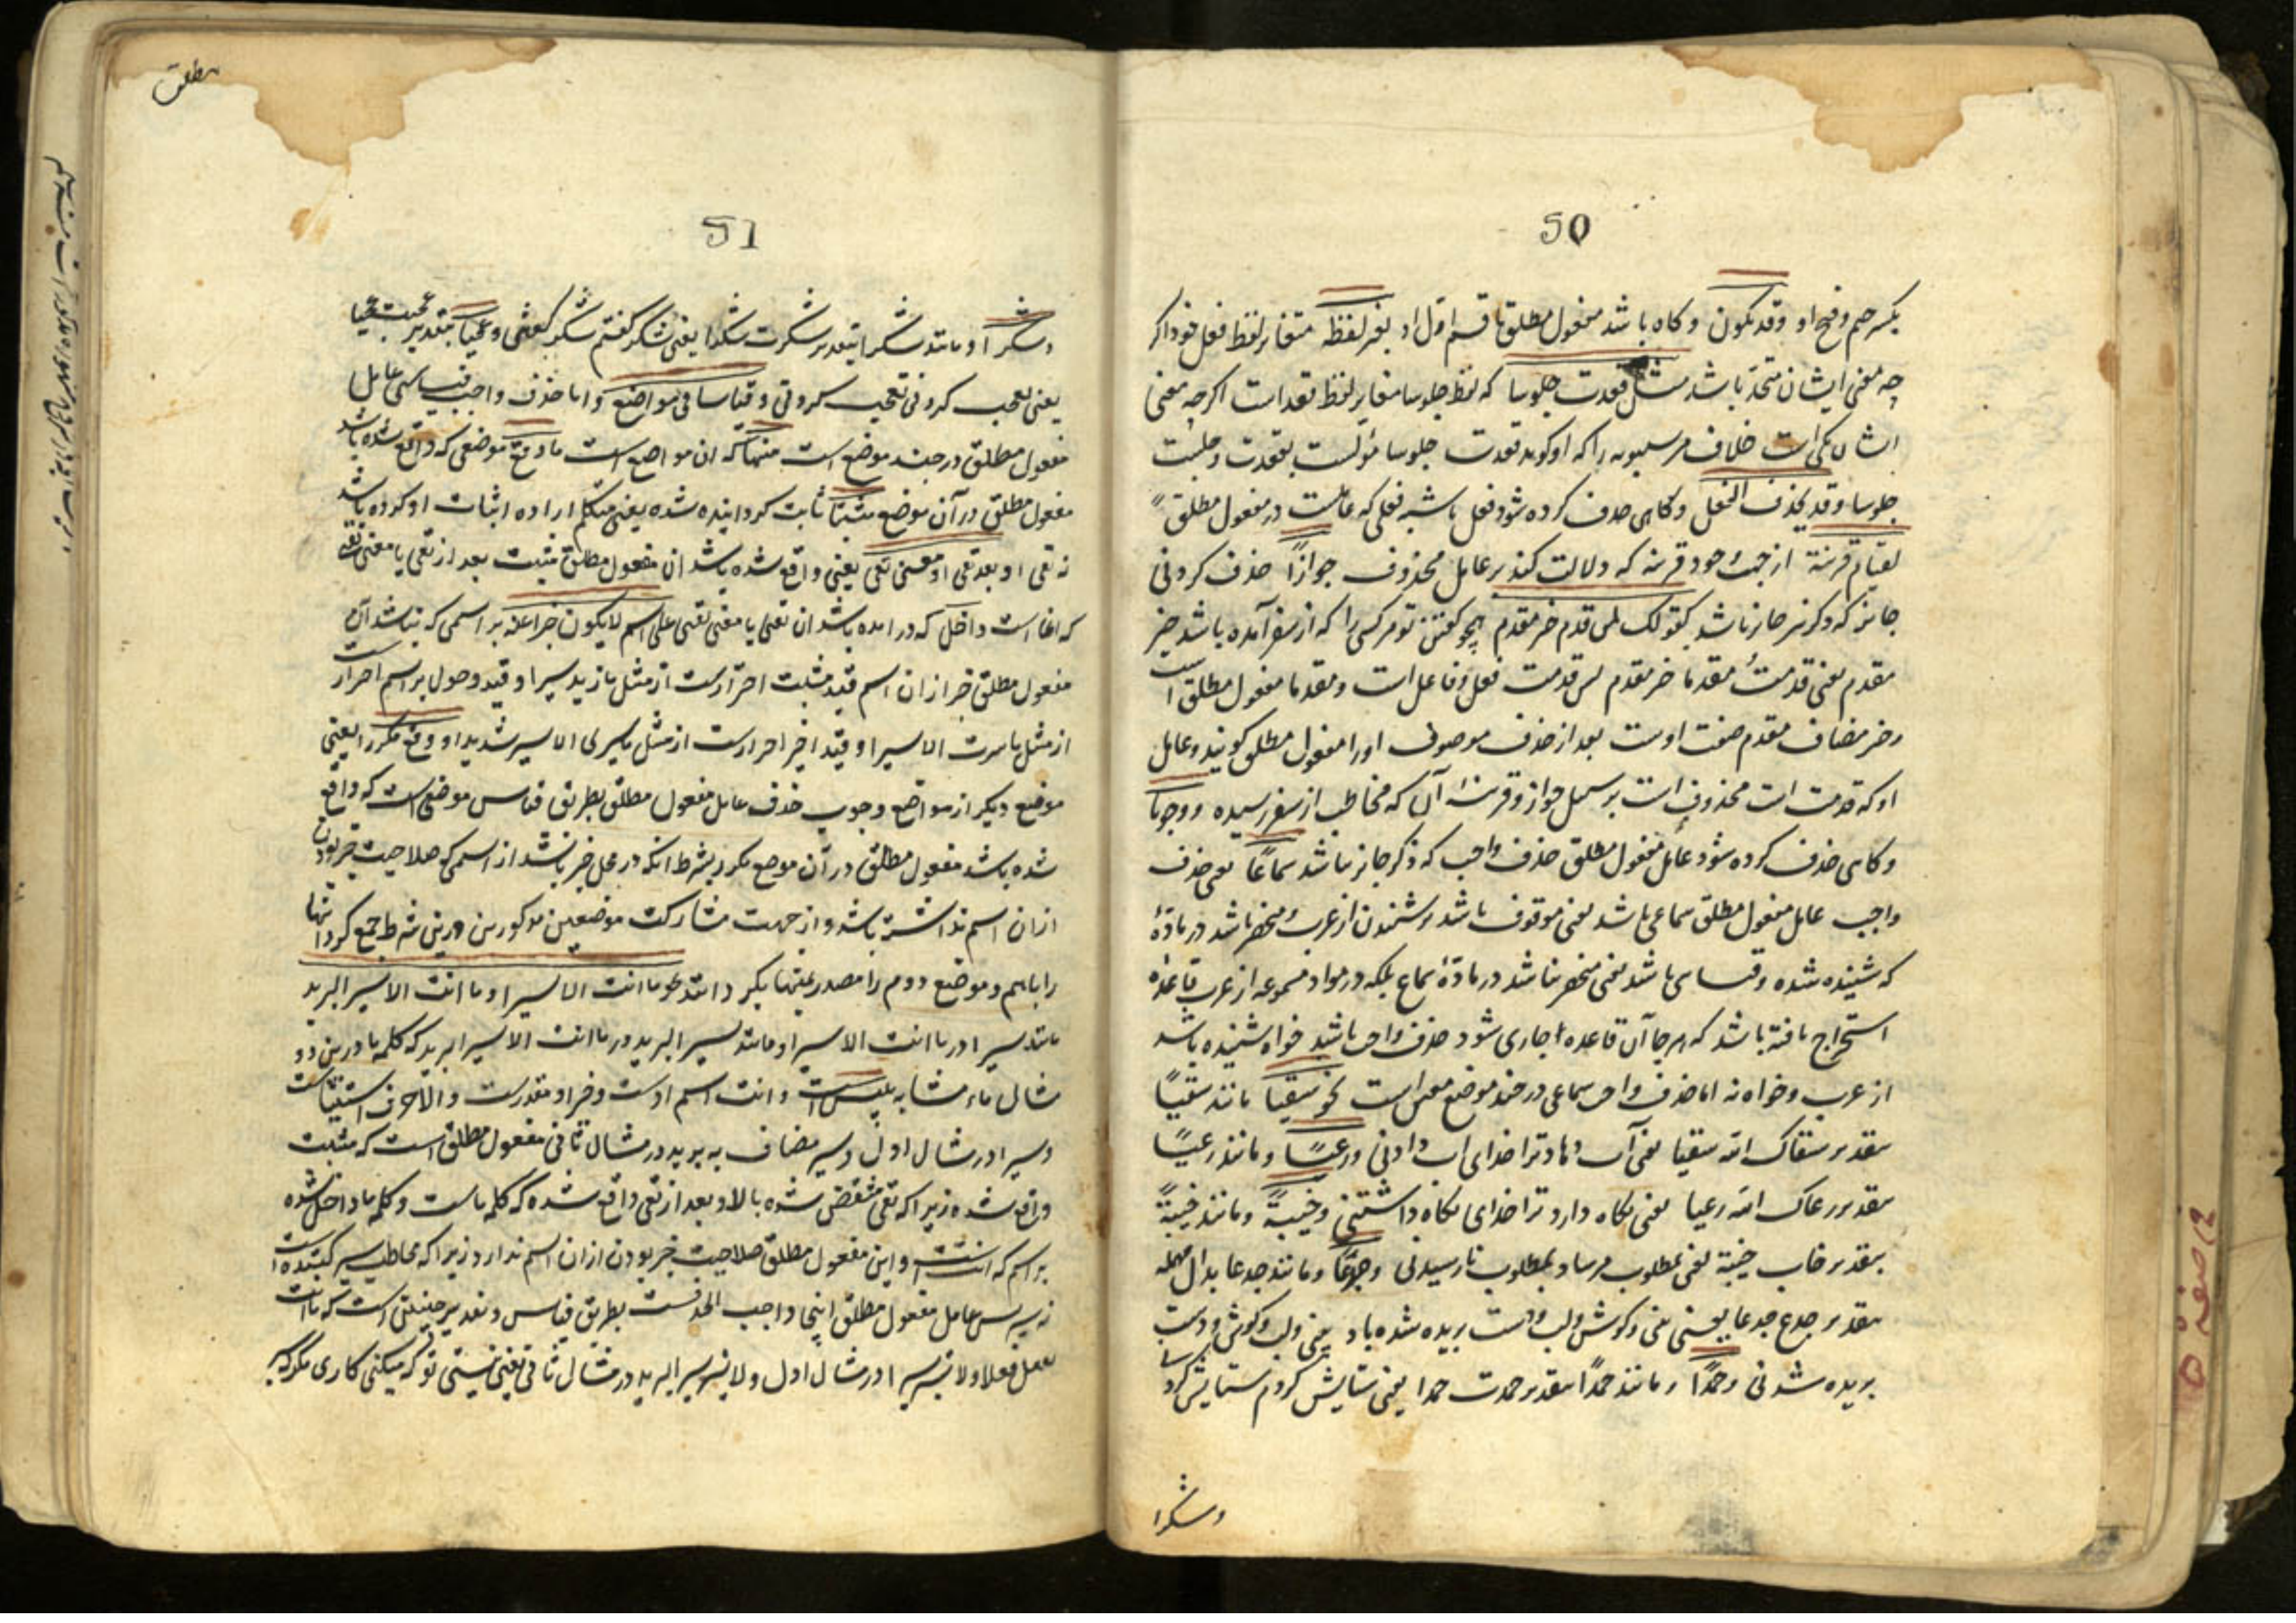 50
بکسر جیم و فتح او وقد یکون و کاه باشد مفعول مطلق قسم اول او بغیر لفظه متغایر لفظ فعل خود اکر
چه معنی ایشان متحد باشد مثل قعدت جلوسا که لفظ جلوسا مغایر لفظ قعد است اکرچه معنی
ایشان یکی است خلاف مر سیبویه را که او کوید قعدت جلوسا مؤلست بقعدت و جلست
جلوسا وقد یحذف الفعل و کاهی حذف کرده شود فعل یا شبه فعلی که عاملست در مفعول مطلق
لقیام قرینة از جهت وجود قرینه که دلالت کند بر عامل محذوف جوازًا حذف کردنی
جایز که ذکر نیز جایز باشد کقولک لمن قدم خیر مقدم همچو کفتن تو مر کسی را که از سفر آمده باشد خیر
مقدم یعنی قدمت مقدما خیر مقدم پس قدمت فعل و فاعل است و مقدما مفعول مطلق است
و خیر مضاف مقدم صفت اوست بعد از حذف موصوف او را مفعول مطلق کویند و عامل
او که قدمت است محذوف است بر سبیل جواز و قرینه آن که مخاطب از سفر رسیده ووجوبا
و کاهی حذف کرده شود عامل مفعول مطلق حذف واجب که ذکر جایز نباشد سماعًا یعنی حذف
واجب عامل مفعول مطلق سماعی باشد یعنی موقوف باشد بر شنیدن از عرب و منحصر باشد در مادهٔ
که شنیده شده و قیاسی باشد یعنی منحصر نباشد در مادهٔ سماع بلکه در مواد مسموعه از عرب قاعدهٔ
استخراج یافته باشد که هر جا آن قاعده اجاری شود حذف واجب باشد خواه شنیده باشد
از عرب و خواه نه اما حذف واجب سماعی در چند موضع معین است نحو سقیا مانند سقیًا
بتقدیر سقاک الله سقیا یعنی آب دهاد ترا خدای آب دادنی ورعیًا و مانند رعیًا
بتقدیر رعاک الله رعیا یعنی نکاه دارد ترا خدای نکاه داشتنی وخیبةً و مانند خیبةً
بتقدیر خاب خیبة یعنی بمطلوب مرساد بمطلوب نارسیدنی وجدعًا و مانند جدعا بدال مهمله
بتقدیر جدع جدعا یعنی بینی و کوش و لب و دست بریده شده باد بینی و لب و کوش و دست
بریده شدنی وحمدًا و مانند حمدًا بتقدیر حمدت حمدا یعنی ستایش کردم ستایش کرد
وشکرا
مطلق
51
وشکرا و مانند شکرا بتقدیر شکرت شکرا یعنی شکر کفتم شکر کفتنی وعجبا بتقدیر عجبت عجبا
یعنی تعجب کردنی تعجب کردنی وقیاسا فی مواضع و اما حذف واجب قیاسی عامل
مفعول مطلق در چند موضع است منها که ان مواضع است ما وقع موضعی که واقع شده باشد
مفعول مطلق در آن موضع مثبتا ثابت کردانیده شده یعنی متکلم اراده اثبات او کرده باشد
نه نفی او بعد نفی او معنی نفی یعنی واقع شده باشد ان مفعول مطلق مثبت بعد از نفی یا معنی نفی
که انما است داخل که درامده باشد ان نفی یا معنی نفی علی اسم لا یکون خبرا عنه بر اسمی که نباشد آن
مفعول مطلق خبر از ان اسم قید مثبت احترازست از مثل ما زید سیرا و قید دخول بر اسم احترازست
از مثل ما سرت الا سیرا و قید اخیر احترازست از مثل ما سیری الا سیر شدید او وقع مکررا یعنی
موضع دیکر از مواضع وجوب حذف عامل مفعول مطلق بطریق قیاس موضعی است که واقع
شده باشد مفعول مطلق در آن موضع مکرر بشرط انکه در محل خبر باشد از اسمی که صلاحیت خبر بودن
ازان اسم نداشته باشد و از جهت مشارکت موضعین مذکورین درین شرط جمع کرد انها
را باهم و موضع دوم را مصدر بمنها نکردانید نحو ما انت الا سیرا و ما انت الا سیر البرید
مانند سیرا در ما انت الا سیرا و مانند سیر البرید در ما انت الا سیر البرید که کلمه ما درین دو
مثال ماء مشابه بلیس است و انت اسم اوست و خبر او مقدرست و الا حرف استثناست
و سیرا در مثال اول و سیر مضاف به برید در مثال ثانی مفعول مطلق است که مثبت
واقع شده زیرا که نفی منتقض شده بالا و بعد از نفی واقع شده که کلمه ماست و کلمه ما داخل شده
بر اسم که انت است و این مفعول مطلق صلاحیت خبر بودن ازان اسم ندارد زیرا که مخاطب سیر کننده است
نه سیر پس عامل مفعول مطلق اینجا واجب الحذفست بطریق قیاس و تقدیر چنین است که ما انت
تعمل فعلا و لا تسیر سیرا در مثال اول و لا تسیر سیر البرید در مثال ثانی یعنی نیستی تو که میکنی کاری مکر که